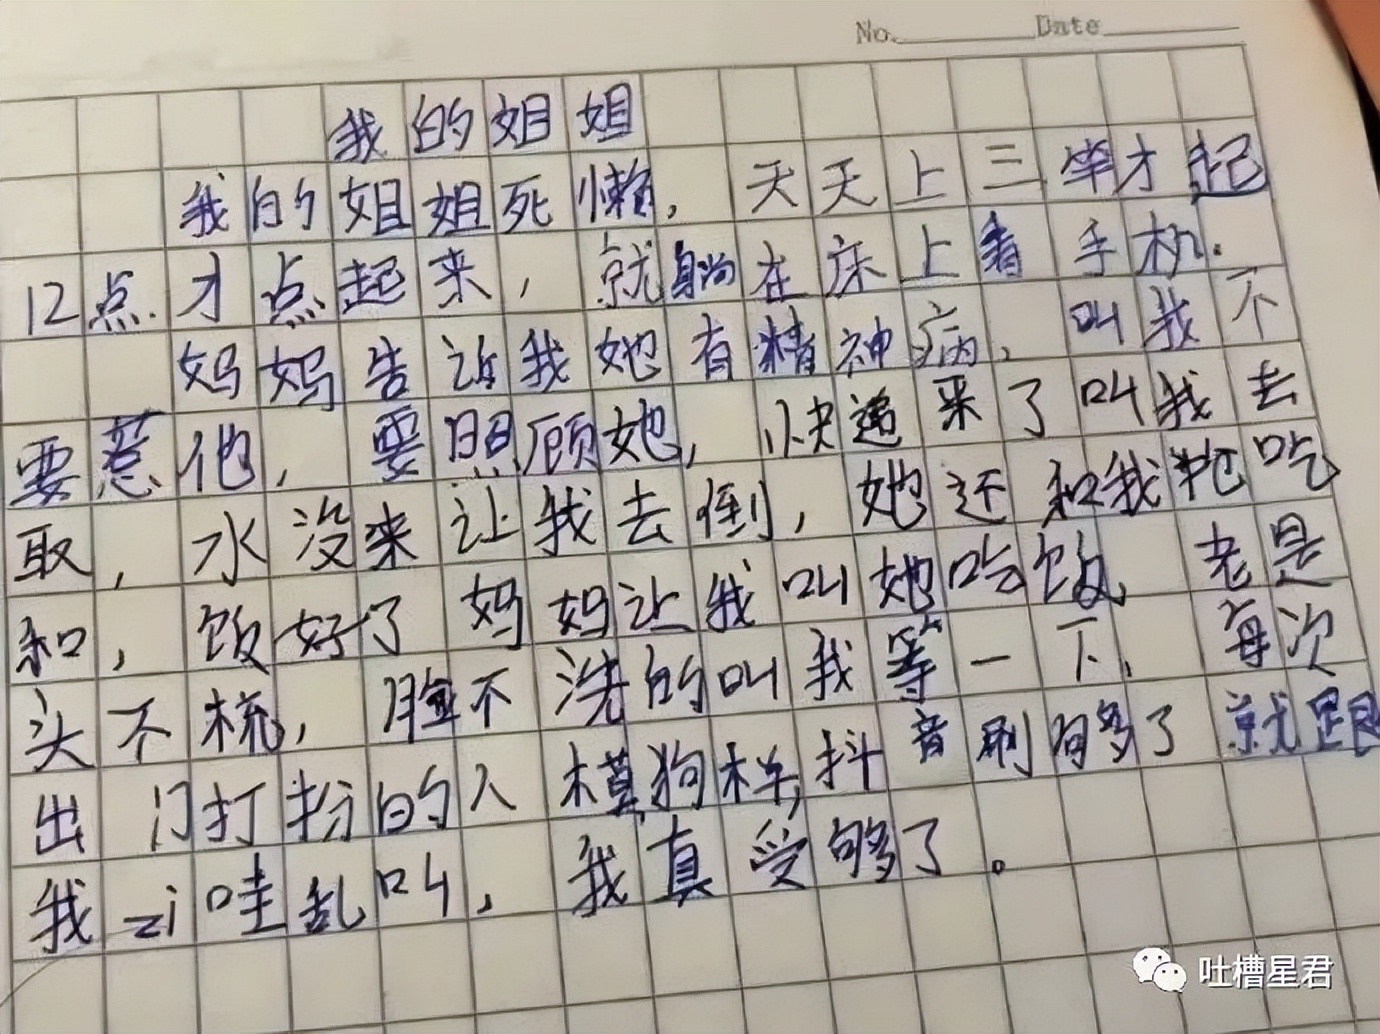 No. Date
我的姐姐
我的姐姐死懒，天天上三竿才起
12点才点起来，就躺在床上看手机.
妈妈告诉我她有精神病，叫我不
要惹他，要照顾她，快递来了叫我去
取，水没来让我去倒，她还和我抢吃
和，饭好了妈妈让我叫她吃饭，老是
头不梳，脸不洗的叫我等一下，每次
出门打扮的人模狗样，抖音刷够了就跟
我zi哇乱叫，我真受够了。
吐槽星君